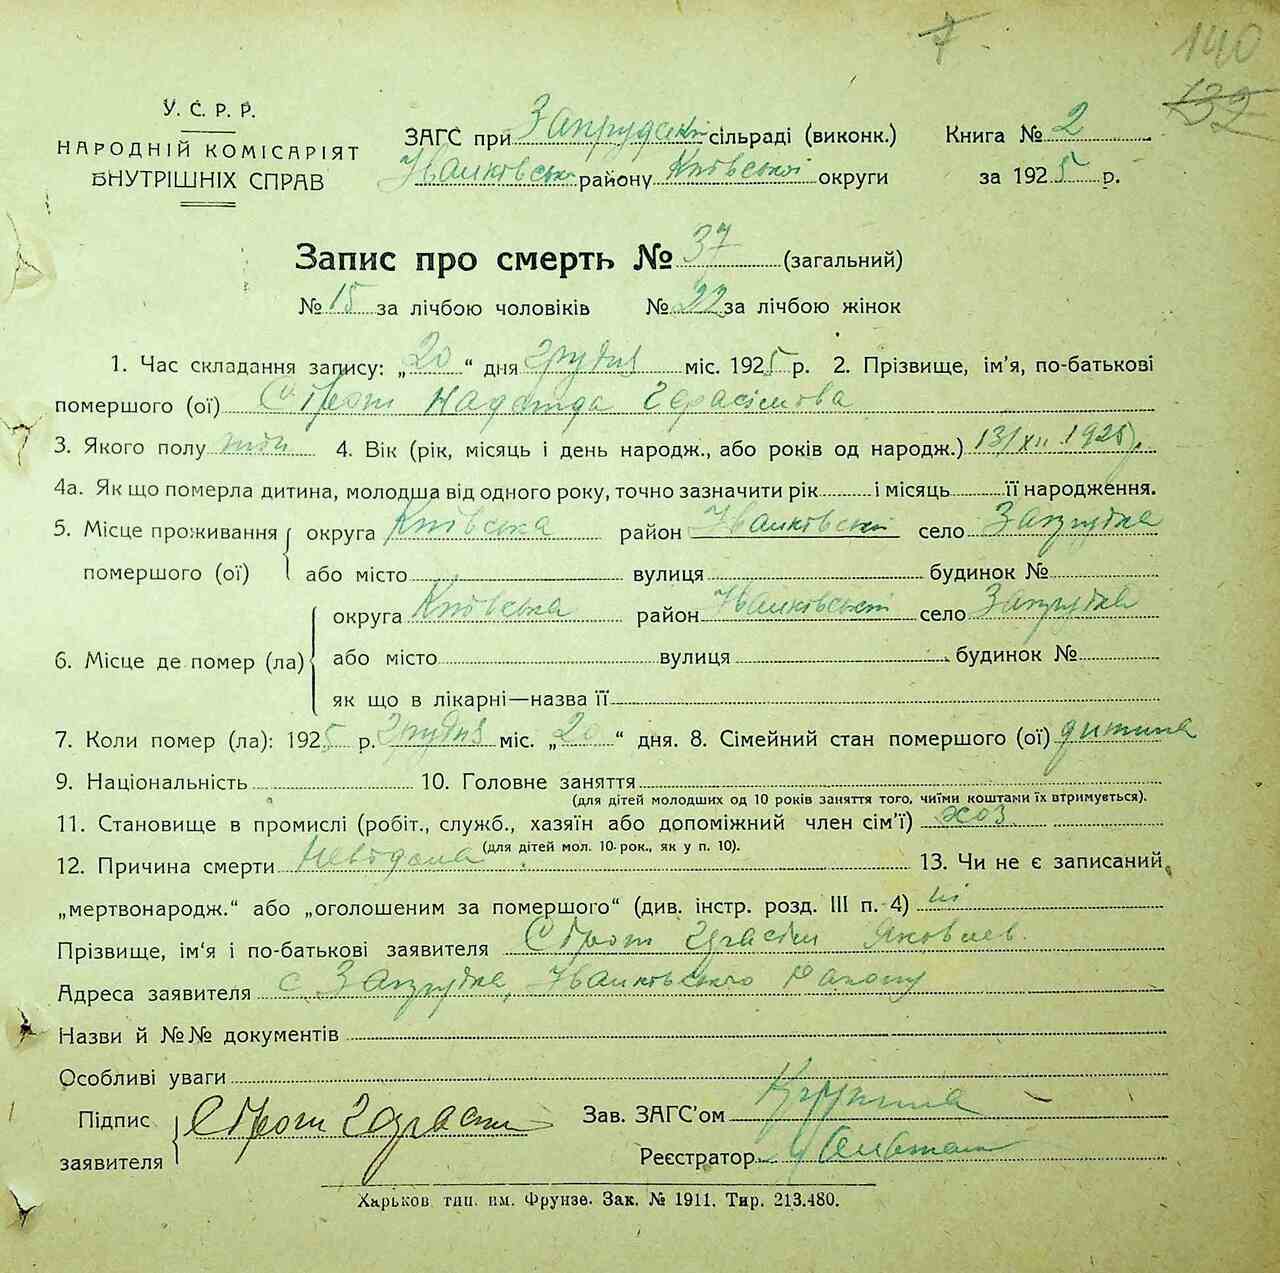 7
140
132
У. С. Р. Р.
НАРОДНІЙ КОМІСАРІЯТ
ВНУТРІШНІХ СПРАВ
ЗАГС при Запрудські сільраді (виконк.)
Іванковськ району Київської округи
Книга № 2
за 1925 р.
Запис про смерть № 37 (загальний)
№ 15 за лічбою чоловіків № 22 за лічбою жінок
1. Час складання запису: „20“ дня грудня міс. 1925 р. 2. Прізвище, ім’я, по-батькові
помершого (ої) Надежда Герасімова
3. Якого полу жін 4. Вік (рік, місяць і день народж., або років од народж.) 13/XII 1925 р.
4а. Як що померла дитина, молодша від одного року, точно зазначити рік і місяць її народження.
5. Місце проживання округа Київська район Іванковські село Запрудка
помершого (ої) або місто вулиця будинок №
округа Київська район Іванковські село Запрудка
6. Місце де помер (ла) або місто вулиця будинок №
як що в лікарні—назва її
7. Коли помер (ла): 1925 р. Грудня міс. „20“ дня. 8. Сімейний стан помершого (ої) дитина
9. Національність 10. Головне заняття
(для дітей молодших од 10 років заняття того, чиїми коштами їх втримується).
11. Становище в промислі (робіт., служб., хазяїн або допоміжний член сім’ї) хоз
(для дітей мол. 10-рок., як у п. 10).
12. Причина смерти Невідома 13. Чи не є записаний
„мертвонародж.“ або „оголошеним за помершого“ (див. інстр. розд. III п. 4) ні
Прізвище, ім‘я і по-батькові заявителя Герасім Яковлев
Адреса заявителя с Запрудка, Іванковського Району
Назви й №№ документів
Особливі уваги
Підпис
заявителя
Зав. ЗАГС’ом
Реєстратор
Харьков тип. им. Фрунзе. Зак. № 1911. Тир. 213.480.